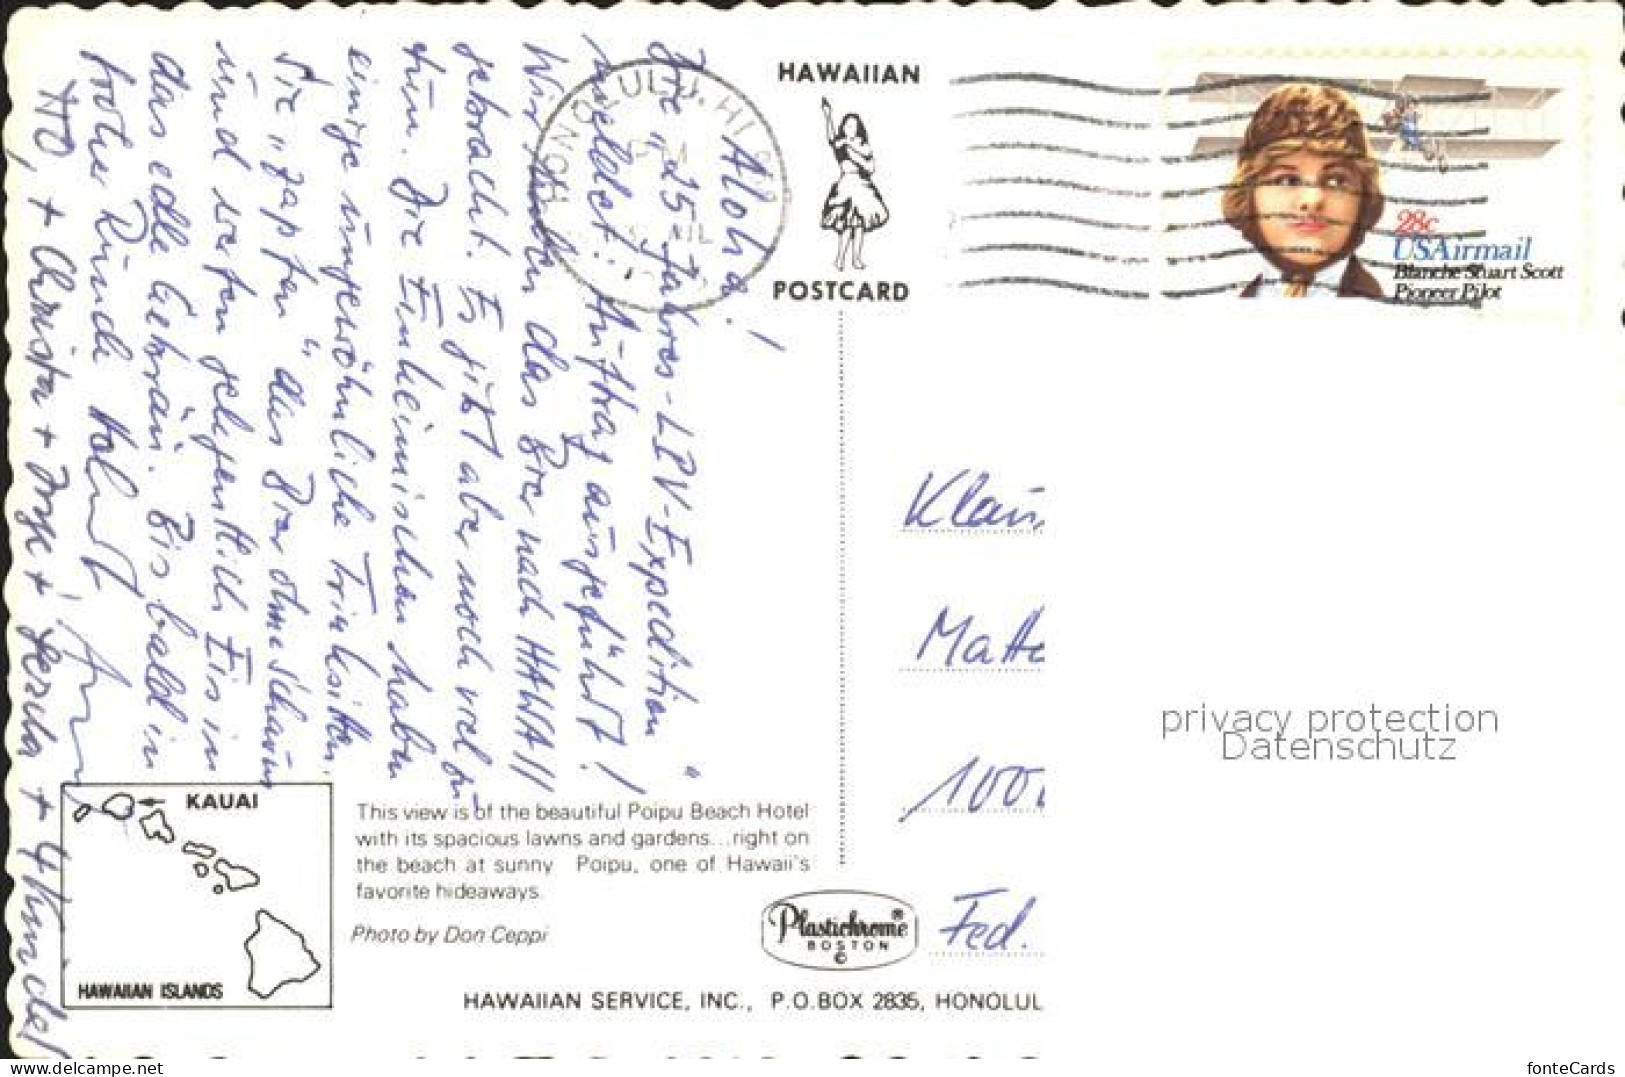 HAWAIIAN
POSTCARD
HONOLULU, HI
28c
USAirmail
Blanche Stuart Scott
Pioneer Pilot
Aloha!
Die „25-Jahres-LPV-Expedition"
meldet: Auftrag ausgeführt!
Wir haben das Bier nach HAWAII
gebracht. Es gibt aber noch viel zu
tun. Die Einheimischen haben
einige ungewöhnliche Trinksitten.
Sie „zapfen" das Bier ohne Schaum
und werfen gelegentlich Eis in
das edle Gebräu. Bis bald in
froher Runde
HO, + Christa + Inge + Gezila + 4 Kinder
Klaus
Matt
100
Fed.
KAUAI
HAWAIIAN ISLANDS
This view is of the beautiful Poipu Beach Hotel
with its spacious lawns and gardens...right on
the beach at sunny Poipu, one of Hawaii's
favorite hideaways.
Photo by Don Ceppi
Plastichrome®
BOSTON
HAWAIIAN SERVICE, INC., P.O.BOX 2835, HONOLUL
privacy protection
Datenschutz
www.delcampe.net
fonteCards